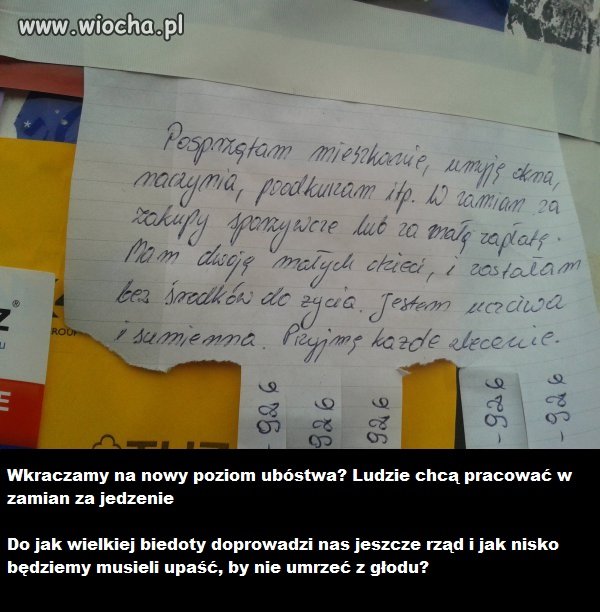 www.wiocha.pl
Posprzątam mieszkanie, umyję okna,
naczynia, poodkurzam itp. W zamian za
zakupy spożywcze lub za małą zapłatę.
Mam dwoję małych dzieci, i zostałam
bez środków do życia. Jestem uczciwa
i sumienna. Przyjmę każde zlecenie.
Z®
GROUP
U
E
TUZ
-926
926
926
-926
-926
Wkraczamy na nowy poziom ubóstwa? Ludzie chcą pracować w
zamian za jedzenie
Do jak wielkiej biedoty doprowadzi nas jeszcze rząd i jak nisko
będziemy musieli upaść, by nie umrzeć z głodu?